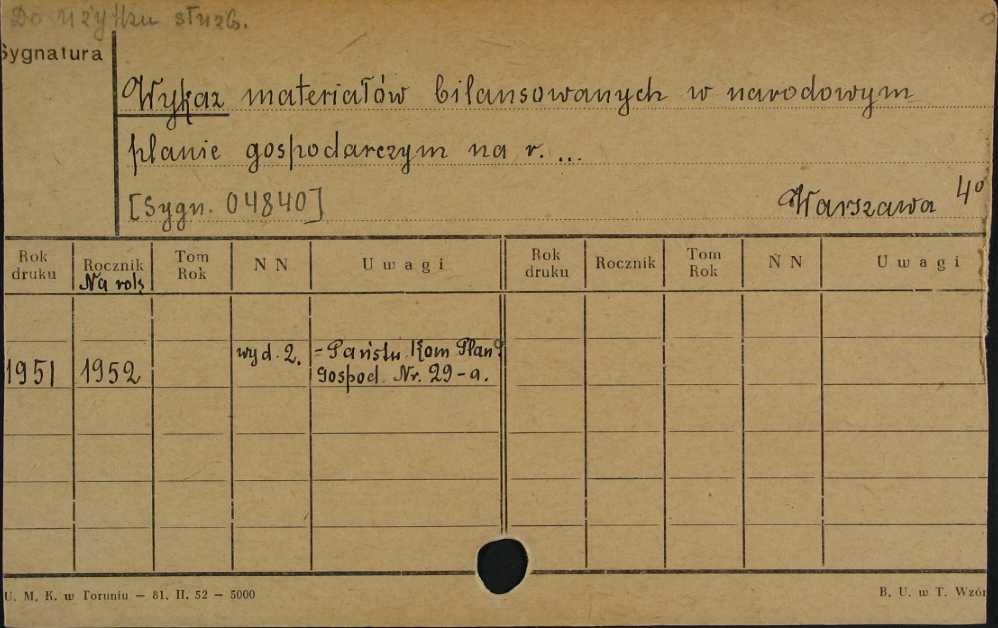 Do użytku służb.
Sygnatura
Wykaz materiałów bilansowanych w narodowym
planie gospodarczym na r. ...
[Sygn. 04840]
Warszawa 4°
Rok druku Rocznik Na rok Tom Rok N N Uwagi Rok druku Rocznik Tom Rok N N Uwagi
1951 1952 wyd. 2. = Państw. Kom Plan.
Gospod. Nr. 29-a.
U. M. K. w Toruniu — 81. II. 52 — 5000
B. U. w T. Wzór